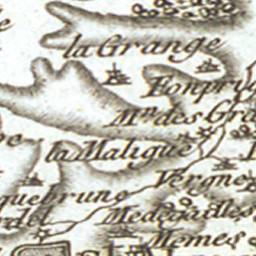 la Grange
Fonpr
Mⁿ. des Gra
la Maligue
Vergne
quebrune
Mederailles
Memes